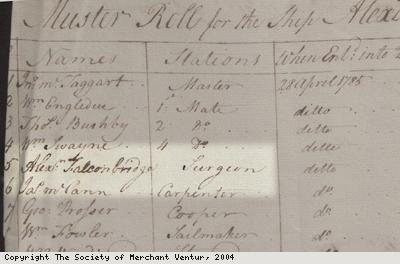 Muster Roll for the Ship Alex
Names Stations When Ent. into
1 Jno. Mc. Taggart Master 28 April 1785
2 Wm. Engledue 1st Mate ditto
3 Thos. Bushby 2 Do. ditto
4 Wm. Swayne 4 Do. ditto
5 Alexr. Falconbridge Surgeon ditto
6 Jas. McCann Carpenter do.
7 Geo. Prosser Cooper do.
Wm. Fowler Sailmaker do.
Copyright The Society of Merchant Ventur, 2004